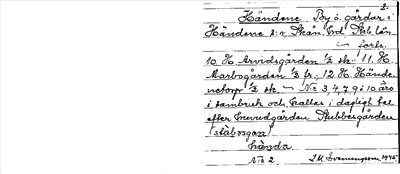 2.
Händene. By o. gårdar i
Händene s:n, Skån. hd Skb. län.
forts.
10. H. Arvidsgården 1/2 sk.; 11. H.
Marbogården 1/2 fr.; 12. H. Hände-
netorp 1/2 sk. — N:r 3, 4, 7, 9 o 10 äro
i sambruk och kallas i dagligt tal
efter huvudgården Stubbegården
(stäbogan)
hända
N:o 2 1945